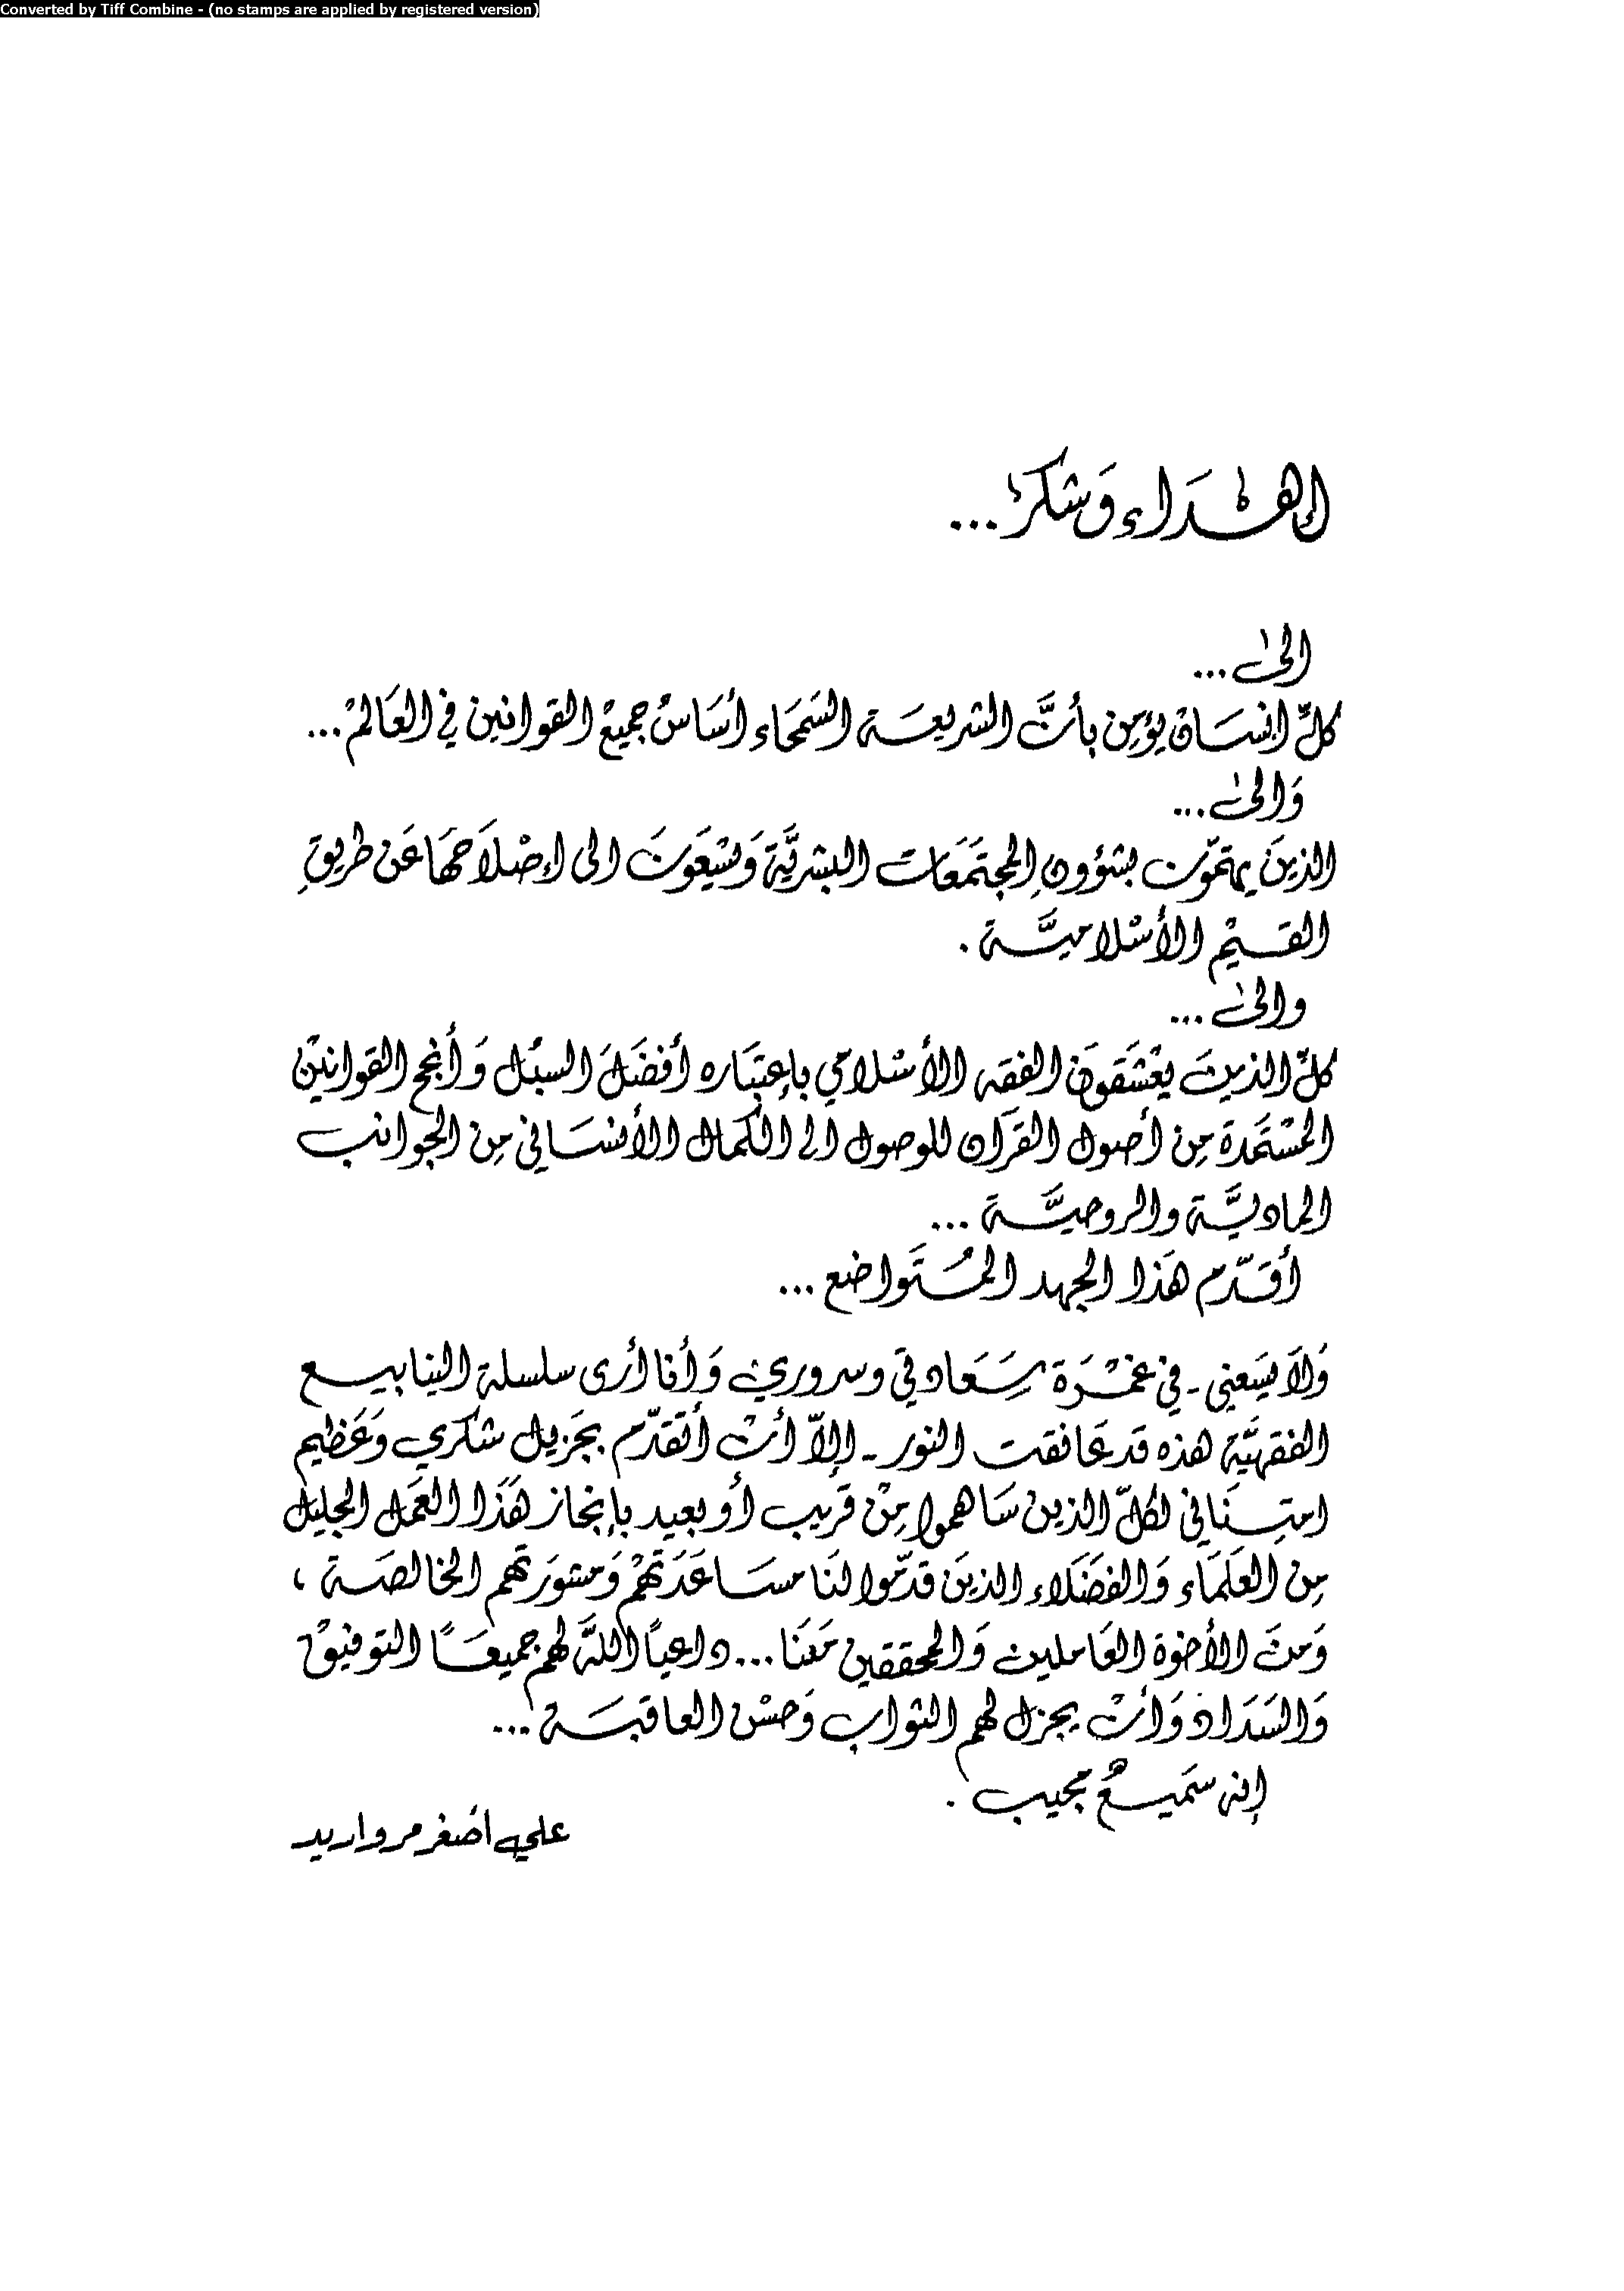 Converted by Tiff Combine - (no stamps are applied by registered version)
إهداء وشكر...
الى...
كلّ انسان يؤمن بأنَّ الشريعة السَمحَاء أسَاسُ جميع القوانين في العَالم...
وَالى...
الذينَ يهتمّون بشؤونِ المجتَمَعَات البشريَّة وَيسْعَونَ الى إصْلاَحهَا عَن طريقِ
القيْم الأسْلاميَّة .
والى...
كلّ الذين يعْشَقونَ الفقه الأسْلامي بإعتبَاره أفضَلَ السبُل وَأنجح القوانين
المسْتمَدة مِن أصول القرآن للوصول الى الكمال الأنسَاني مِن الجوانب
الماديَّة والروحيَّة ...
أقدّم هَذا الجهد المُتَواضع ...
وَلاَ يسَعني - في غمْرَة سَعَادتي وسروري وَأنا أرى سلسلة الينابيع
الفقهيَّة هذه قد عَانقت النور - إلاّ أنْ أتقدّم بجَزيل شكري وَعَظيم
امتِنَاني لكلّ الذين سَاهموا مِنْ قَريب أو بعيد بإنجاز هَذا العَمَل الجليل
مِن العلَمَاء وَالفضَلاء الذينَ قدّموا لنَا مسَاعَدَتهمْ وَمشورَتهم الخالصَة ،
وَمنَ الأخوة العَاملين وَالمحققين مَعَنَا... داعياً اللّهَ لهم جميعًا التوفيقْ
وَالسَدَاد وَأنْ يجزل لهم الثواب وَحسْن العاقبَة ...
إنه سَميعٌ مجيب .
علي أصغر مرواريد